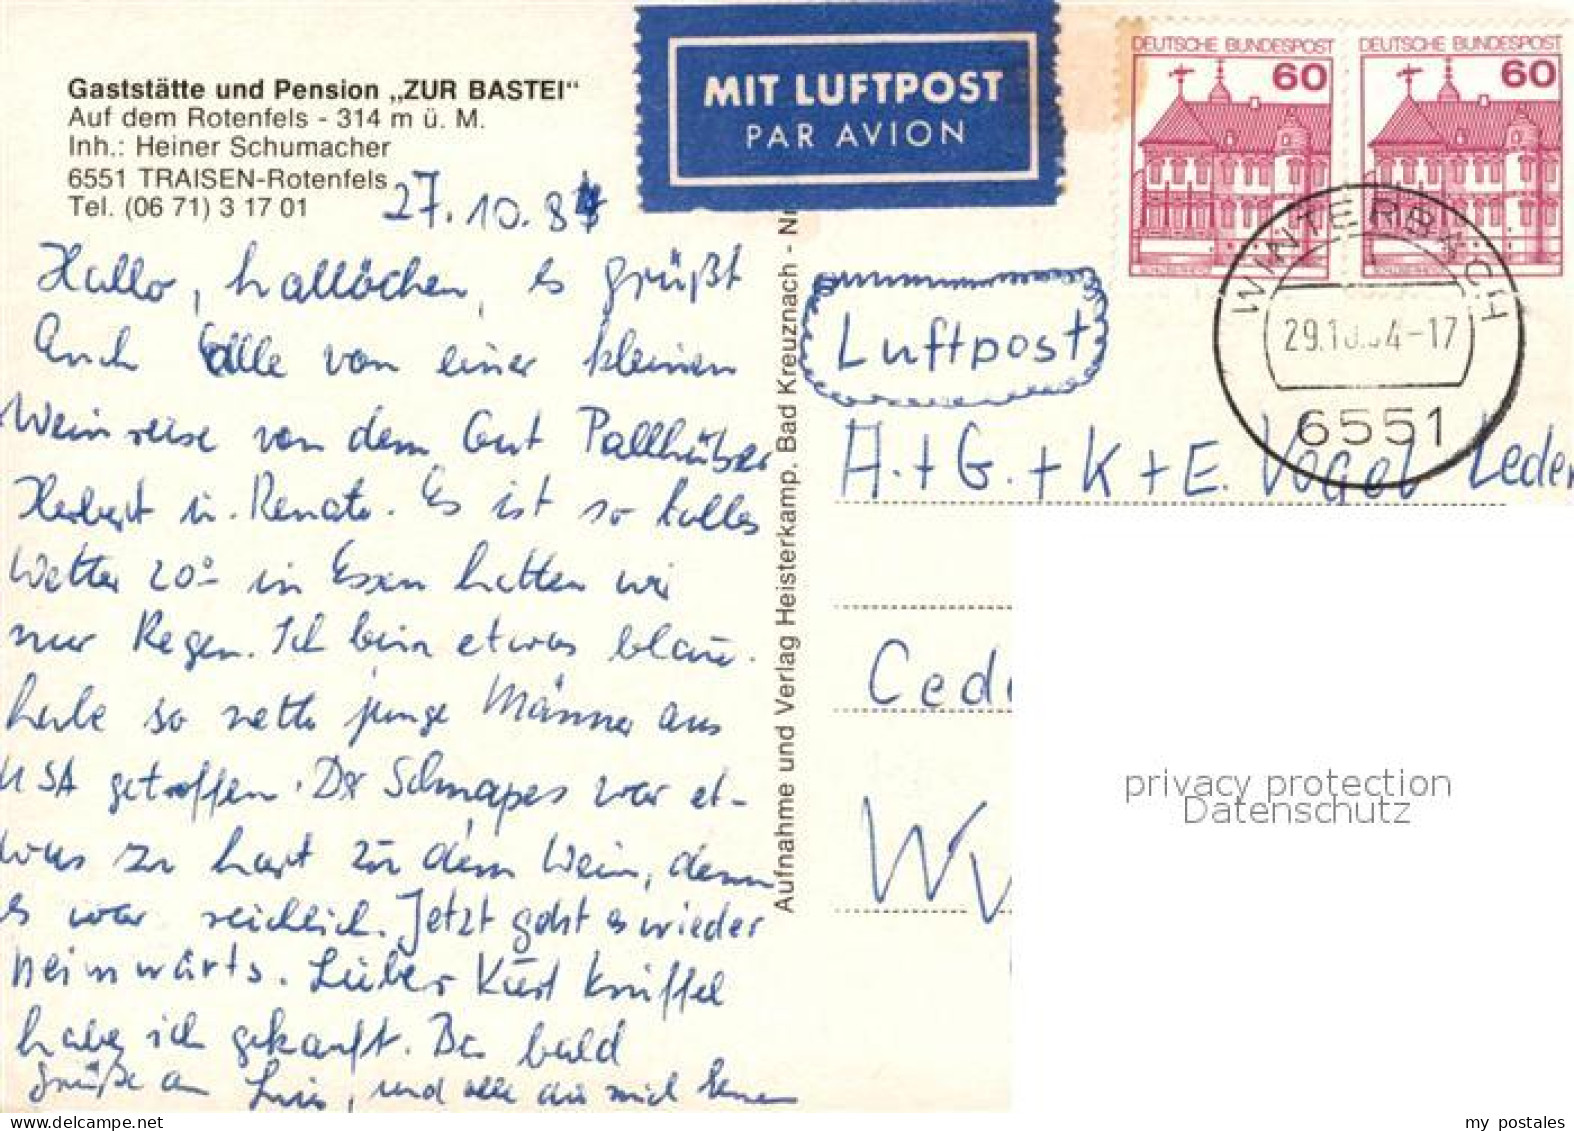 Gaststätte und Pension „ZUR BASTEI“
Auf dem Rotenfels - 314 m ü. M.
Inh.: Heiner Schumacher
6551 TRAISEN-Rotenfels
Tel. (06 71) 3 17 01
27.10.84
Hallo, hallöchen, es grüßt
Auch alle von einer kleinen
Weinreise von dem Gut Pallhuber
Herbert u. Renate. Es ist so tolles
Wetter 20° in Essen hatten wir
nur Regen. Ich bin etwas blau.
habe so nette junge Männer aus
USA getroffen. Der Schnapes war et-
was zu hart zu dem Wein, denn
es war reichlich. Jetzt geht es wieder
heimwärts. Lieber Kurt Kniffel
habe ich gekauft. Bis bald
Grüße an und alle die mich kennen
Aufnahme und Verlag Heisterkamp. Bad Kreuznach - Nr
MIT LUFTPOST
PAR AVION
DEUTSCHE BUNDESPOST
60
DEUTSCHE BUNDESPOST
60
WINTERBACH
29.10.84-17
6551
Luftpost
A.+G.+K+E. Vogel Leder
Ced
W
privacy protection
Datenschutz
my postales